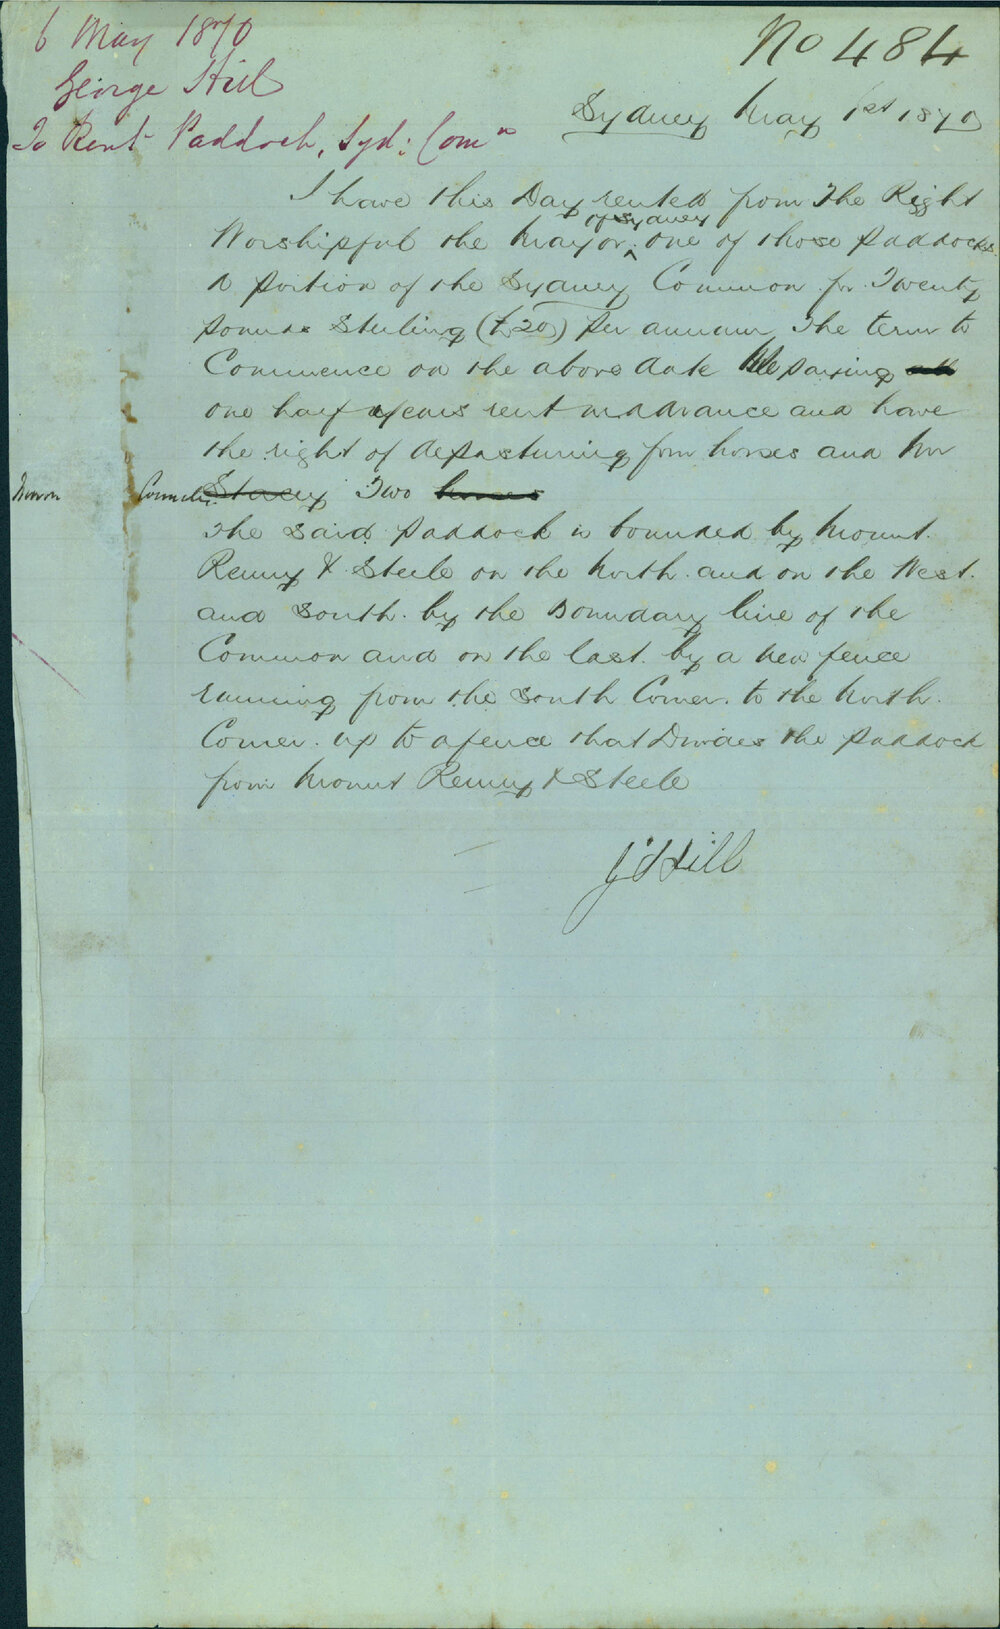 6 May 1870
George Hill
To Rent Paddock, Syd: Comn
No 484
Sydney May 1st 1870
I have this Day rented from The Right
Worshipful the Mayor of Sydney one of those paddocks
A portion of the Sydney Common for Twenty
pounds Sterling (£20) per annum The term to
Commence on the above date paying all
one half years rent in advance and have
the right of depasturing four horses and
Stacey Two horses
The Said paddock is bounded by Mount
Renny & Steele on the North. and on the West.
and South. by the Boundary line of the
Common and on the East. by a New fence
running from the South Corner. to the North.
Corner. up to a fence that Divides the paddock
from Mount Renny & Steele
G Hill